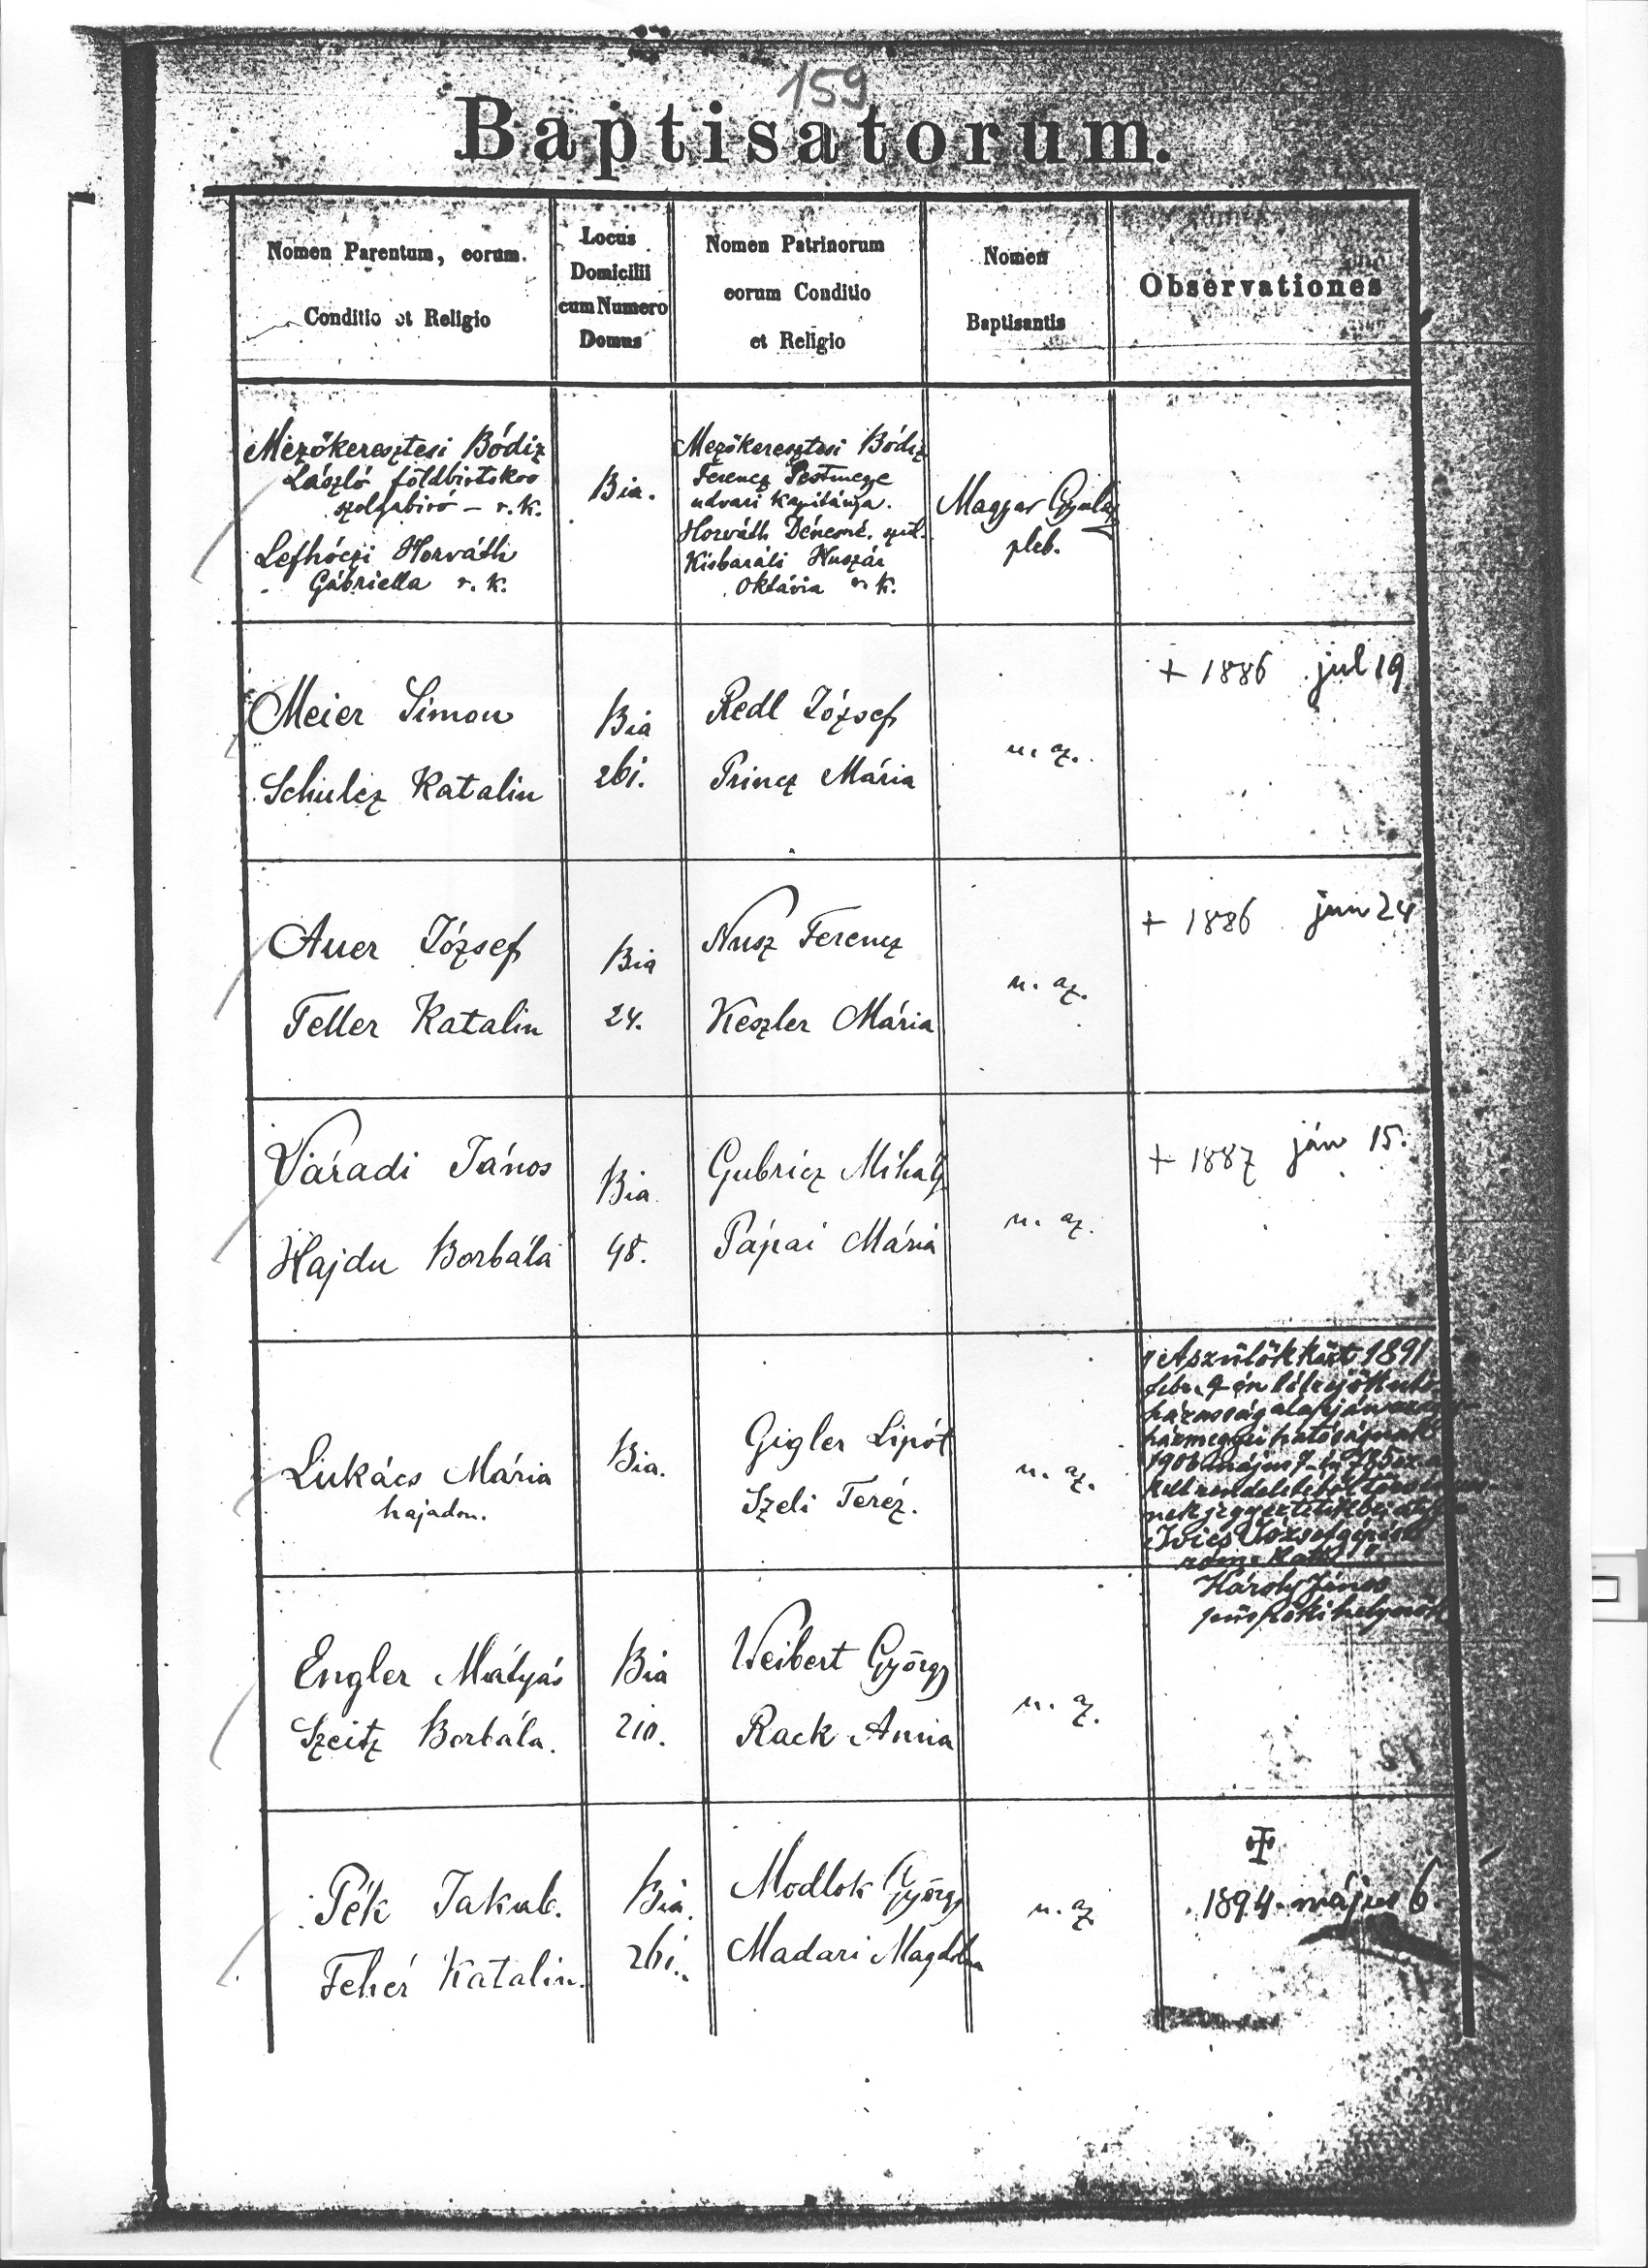 159
Baptisatorum.
Nomen Parentum, eorum.
Conditio et Religio
Locus
Domicilii
cum Numero
Domus
Nomen Patrinorum
eorum Conditio
et Religio
Nomen
Baptisantis
Observationes
Mezőkeresztesi Bódiz
László földbirtokos
szolgabiró – r. k.
Horváth
Gábriella r. k.
Bia.
Mezőkeresztesi Bódiz
Ferencz Pestmegye
udvari kapitánya.
Horváth Dénesné. szül.
Kisbaráti Huszár
Oktávia r. k.
Magyar Gyula
pleb.
Meier Simon
Schulcz Katalin
Bia
261.
Redl József
Princz Mária
u. az.
+ 1886 jul 19
Auer József
Teller Katalin
Bia
24.
Nusz Ferencz
Keszler Mária
u. az.
+ 1886 jun 24
Váradi János
Hajdu Borbála
Bia
48.
Gubricz Mihály
Pápai Mária
u. az.
+ 1887 ján 15.
Lukács Mária
hajadon.
Bia.
Gigler Lipót
Szeli Teréz.
u. az.
A szülők közt 1891
febr. 9-én létrejött
házasság alapján
házmegyei hatóságnak
1906 május
kelt rendeletéből
József gépész
róm. kath."
Károly János
püspöki helynök
Engler Mátyás
Szeitz Borbála.
Bia
210.
Weibert György
Rack Anna
u. az.
Pék Jakab.
Fehér Katalin.
Bia.
261.
Modlok György
Madari Magdolna
u. az
1894. május 6.